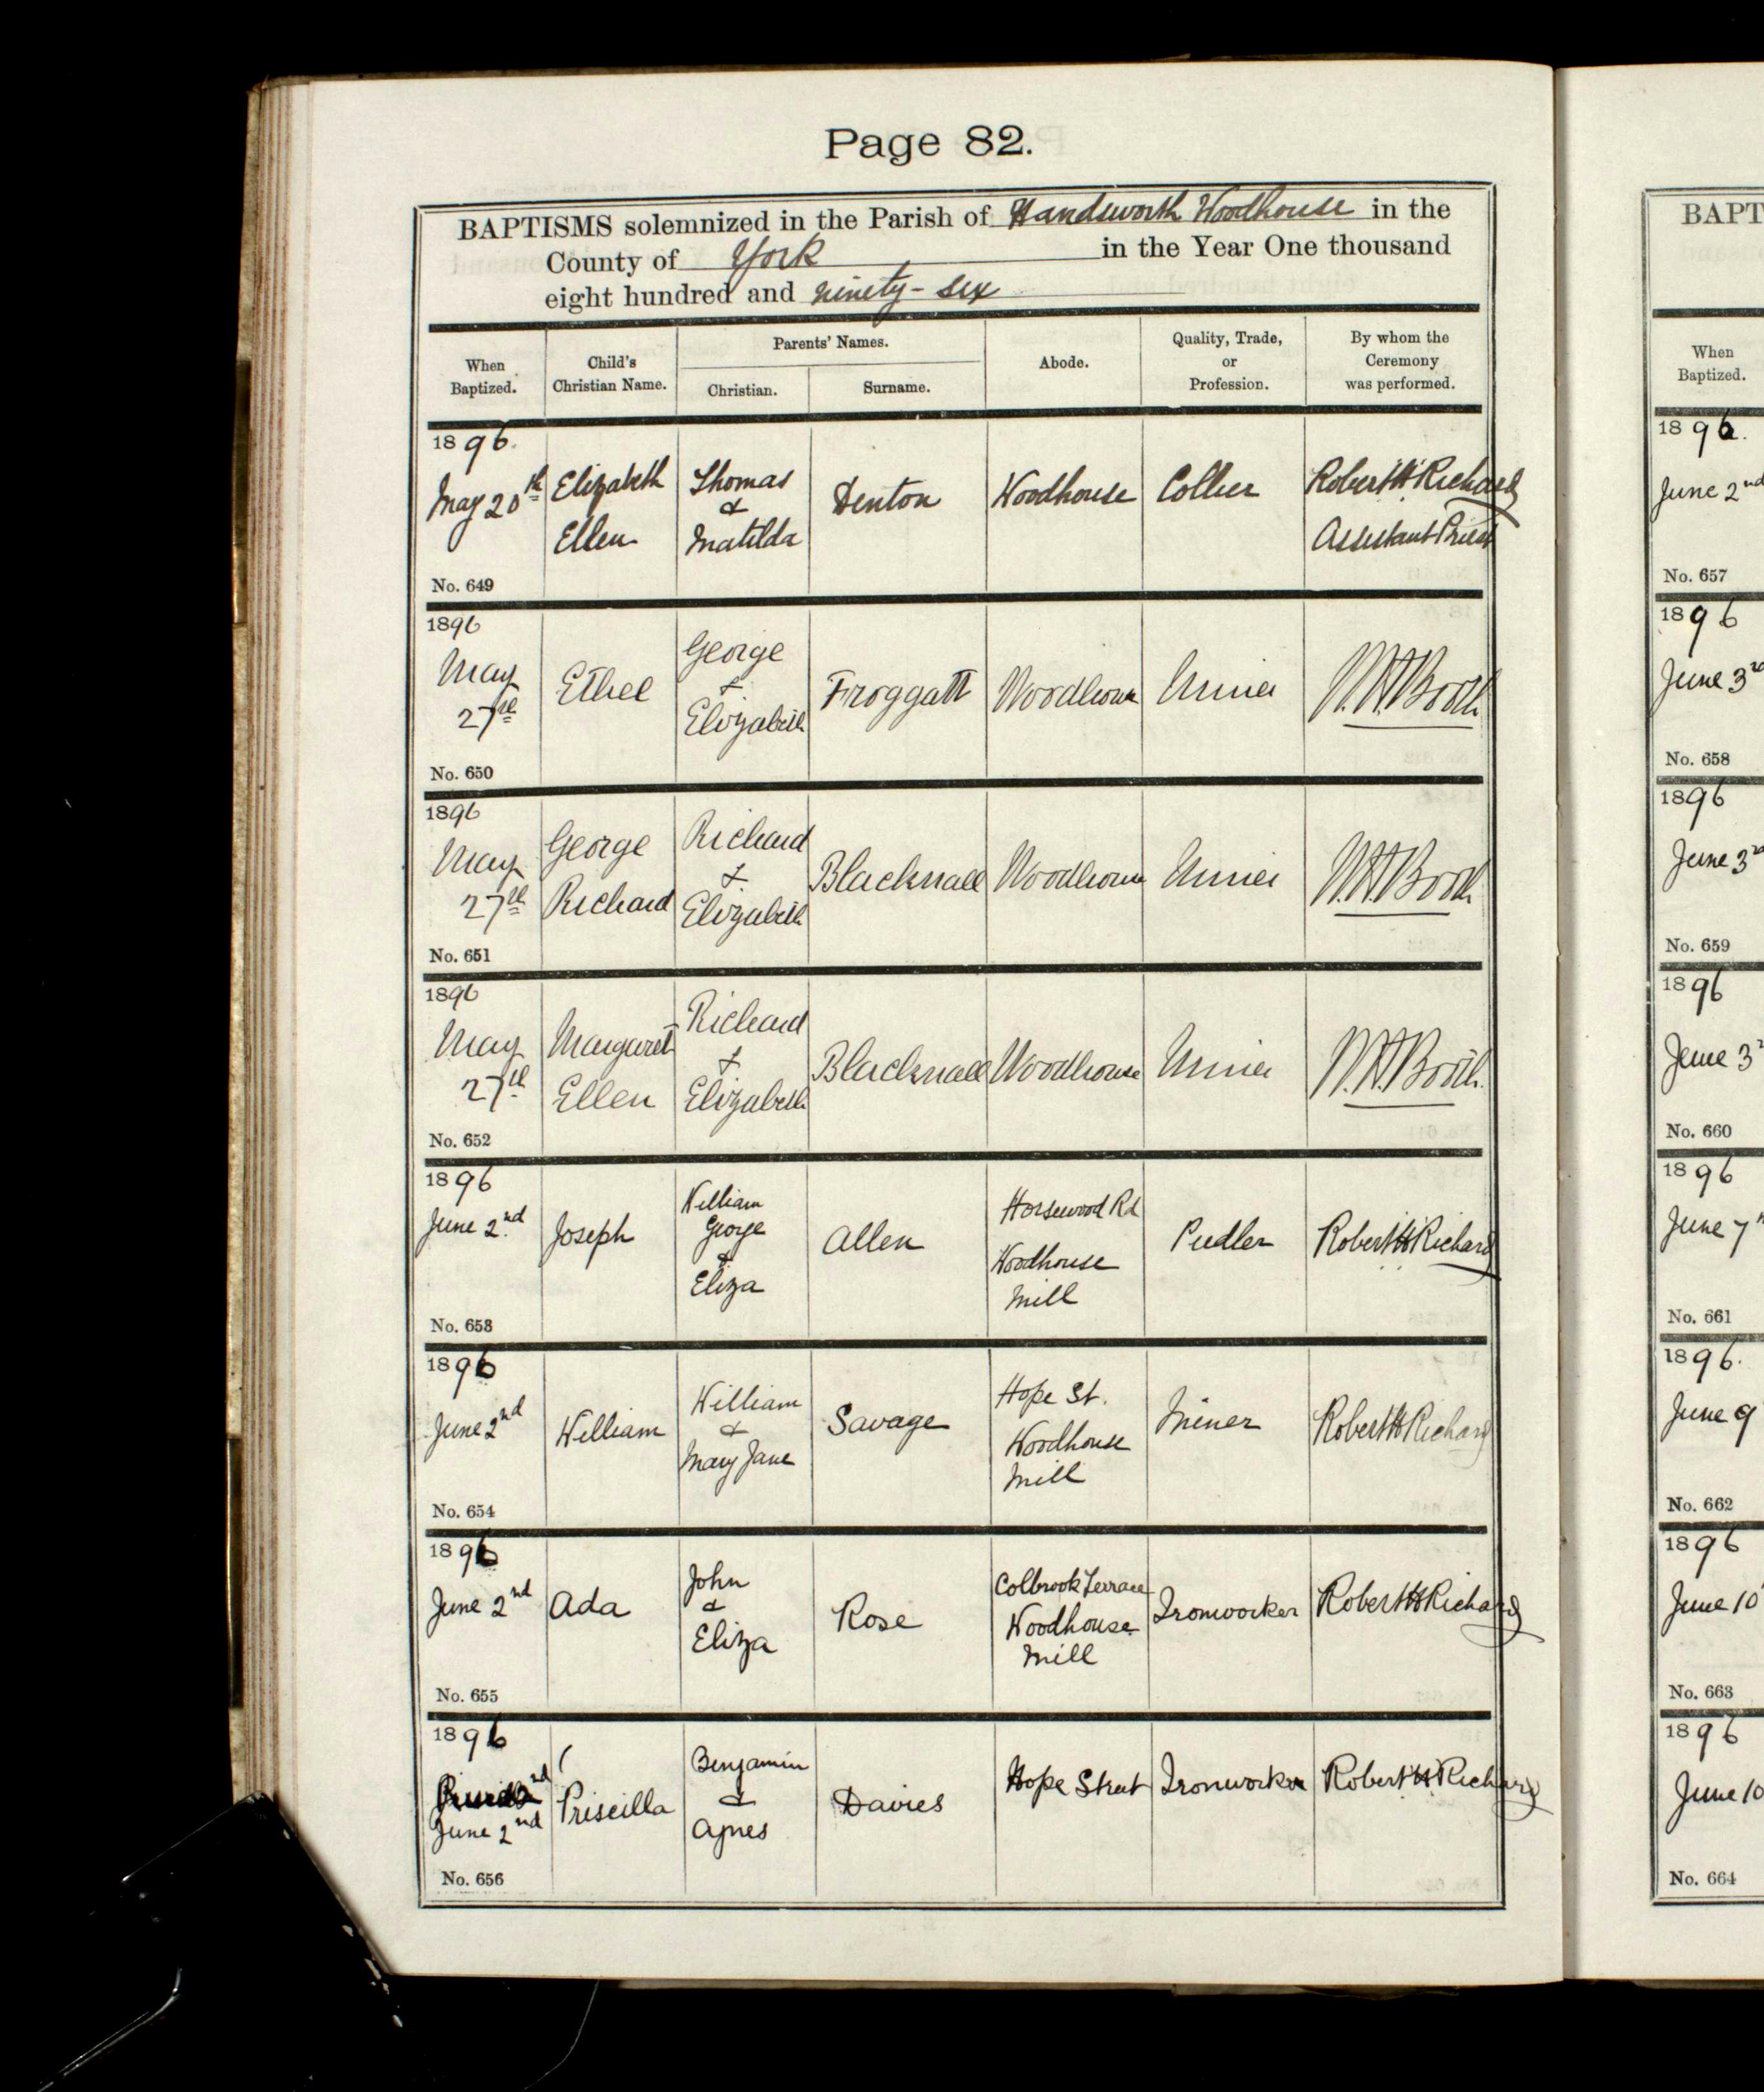 Page 82.
BAPTISMS solemnized in the Parish of Handsworth Woodhouse in the
County of York in the Year One thousand
eight hundred and ninety-six
When Baptized.
Child's Christian Name.
Parents' Names.
Christian.
Surname.
Abode.
Quality, Trade, or Profession.
By whom the Ceremony was performed.
1896.
May 20th
Elizabeth
Ellen
Thomas
&
Matilda
Denton
Woodhouse
Collier
Robert H Richard
Assistant Priest
No. 649
1896
May
27th
Ethel
George
&
Elizabeth
Froggatt
Woodhouse
Miner
W.H. Booth
No. 650
1896
May
27th
George
Richard
Richard
&
Elizabeth
Blacknall
Woodhouse
Miner
W.H. Booth
No. 651
1896
May
27th
Margaret
Ellen
Richard
&
Elizabeth
Blacknall
Woodhouse
Miner
W.H. Booth.
No. 652
1896
June 2nd
Joseph
William
George
&
Eliza
Allen
Horsewood Rd
Woodhouse
Mill
Pudler
Robert H Richard
No. 653
1896
June 2nd
William
William
&
Mary Jane
Savage
Hope St.
Woodhouse
Mill
Miner
Robert H Richard
No. 654
1896
June 2nd
Ada
John
&
Eliza
Rose
Colbrook Terrace
Woodhouse
Mill
Ironworker
Robert H Richard
No. 655
1896
June 2nd
Priscilla
Benjamin
&
Agnes
Davies
Hope Street
Ironworker
Robert H Richard
No. 656
BAPT
When
Baptized.
1896.
June 2nd
No. 657
1896
June 3rd
No. 658
1896
June 3rd
No. 659
1896
June 3
No. 660
1896
June 7
No. 661
1896.
June 9
No. 662
1896
June 10
No. 663
1896
June 10
No. 664